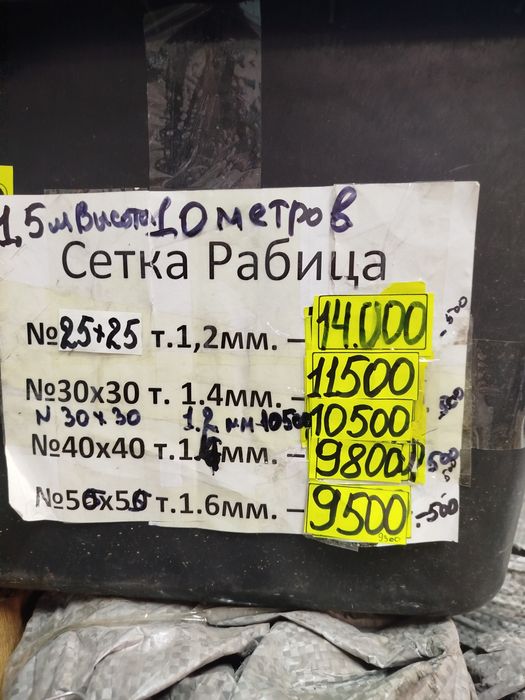 1,5 м Высота 10 метров
Сетка Рабица
№25+25 т.1,2мм. – 14.000 -500
№30х30 т. 1.4мм. – 11500
N 30х30 1.2 мм 10500 10500
№40х40 т.1.4мм. – 9800 500
№56х56 т.1.6мм. – 9500 -500
9500